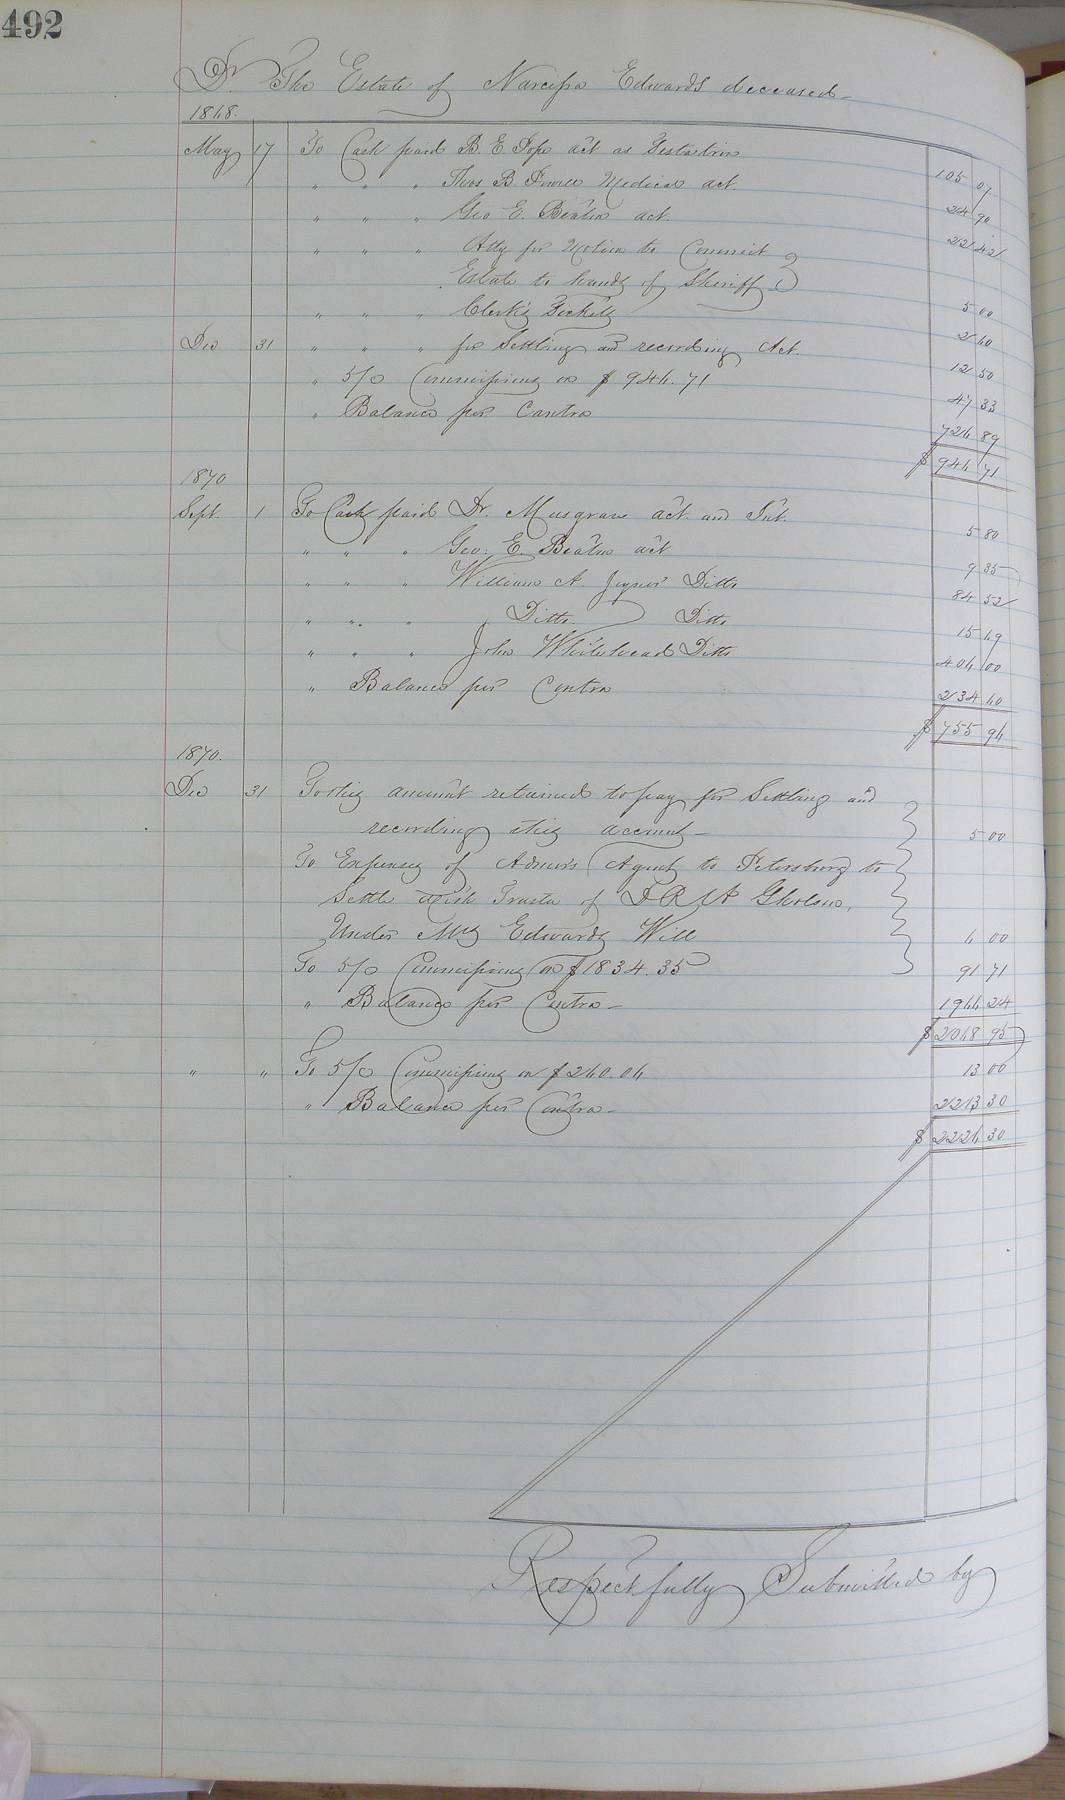 492
Dr. The Estate of Narcissa Edwards deceased
1868.
May 17 To Cash paid B. E. Pope act as Testatrix 105 07
" " " Thos B. Powell Medical act. 24 90
" " " Geo E. Beaton act. 22 42
" " " Atty for Motion to Commit
Estate to hands of Sheriff 5 00
" " " Clerks Tickets 2 60
Dec 31 " " " for Settling and recording Act. 12 50
" 5/0 Commissions on $946.71 47 33
" Balance per Contra 726 89
$ 946 71
1870
Sept. 1 To Cash paid Dr. Musgrave act. and Int. 5 80
" " " Geo: E. Beaton act 9 35
" " " William A. Joyner Ditto 84 52
" " " Ditto Ditto 15 69
" " " John Whitehead Ditto 406 00
" Balance per Contra 234 60
$ 755 96
1870.
Dec 31 To this amount retained to pay for Settling and
recording this account 5 00
To Expenses of Admors Agent to Petersburg to
Settle with Trustee of Gholson,
Under Mrs Edwards Will 6 00
To 5/0 Commissions on $1834.35 91 71
" Balance per Contra 1966 24
$ 2068 95
" " To 5/0 Commissions on $260.06 13 00
" Balance per Contra 2213 30
$ 2226 30
Respectfully Submitted by